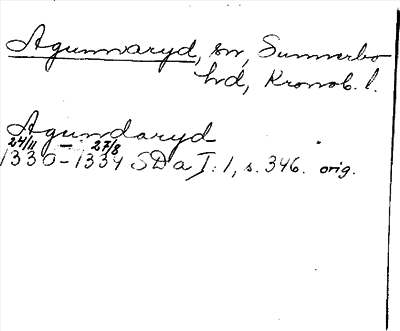 Agunnaryd, sn, Sunnerbo
hd, Kronob. l.
Agundaryd
24/11 — 27/8
1330–1334 SDa I:1, s. 346. orig.